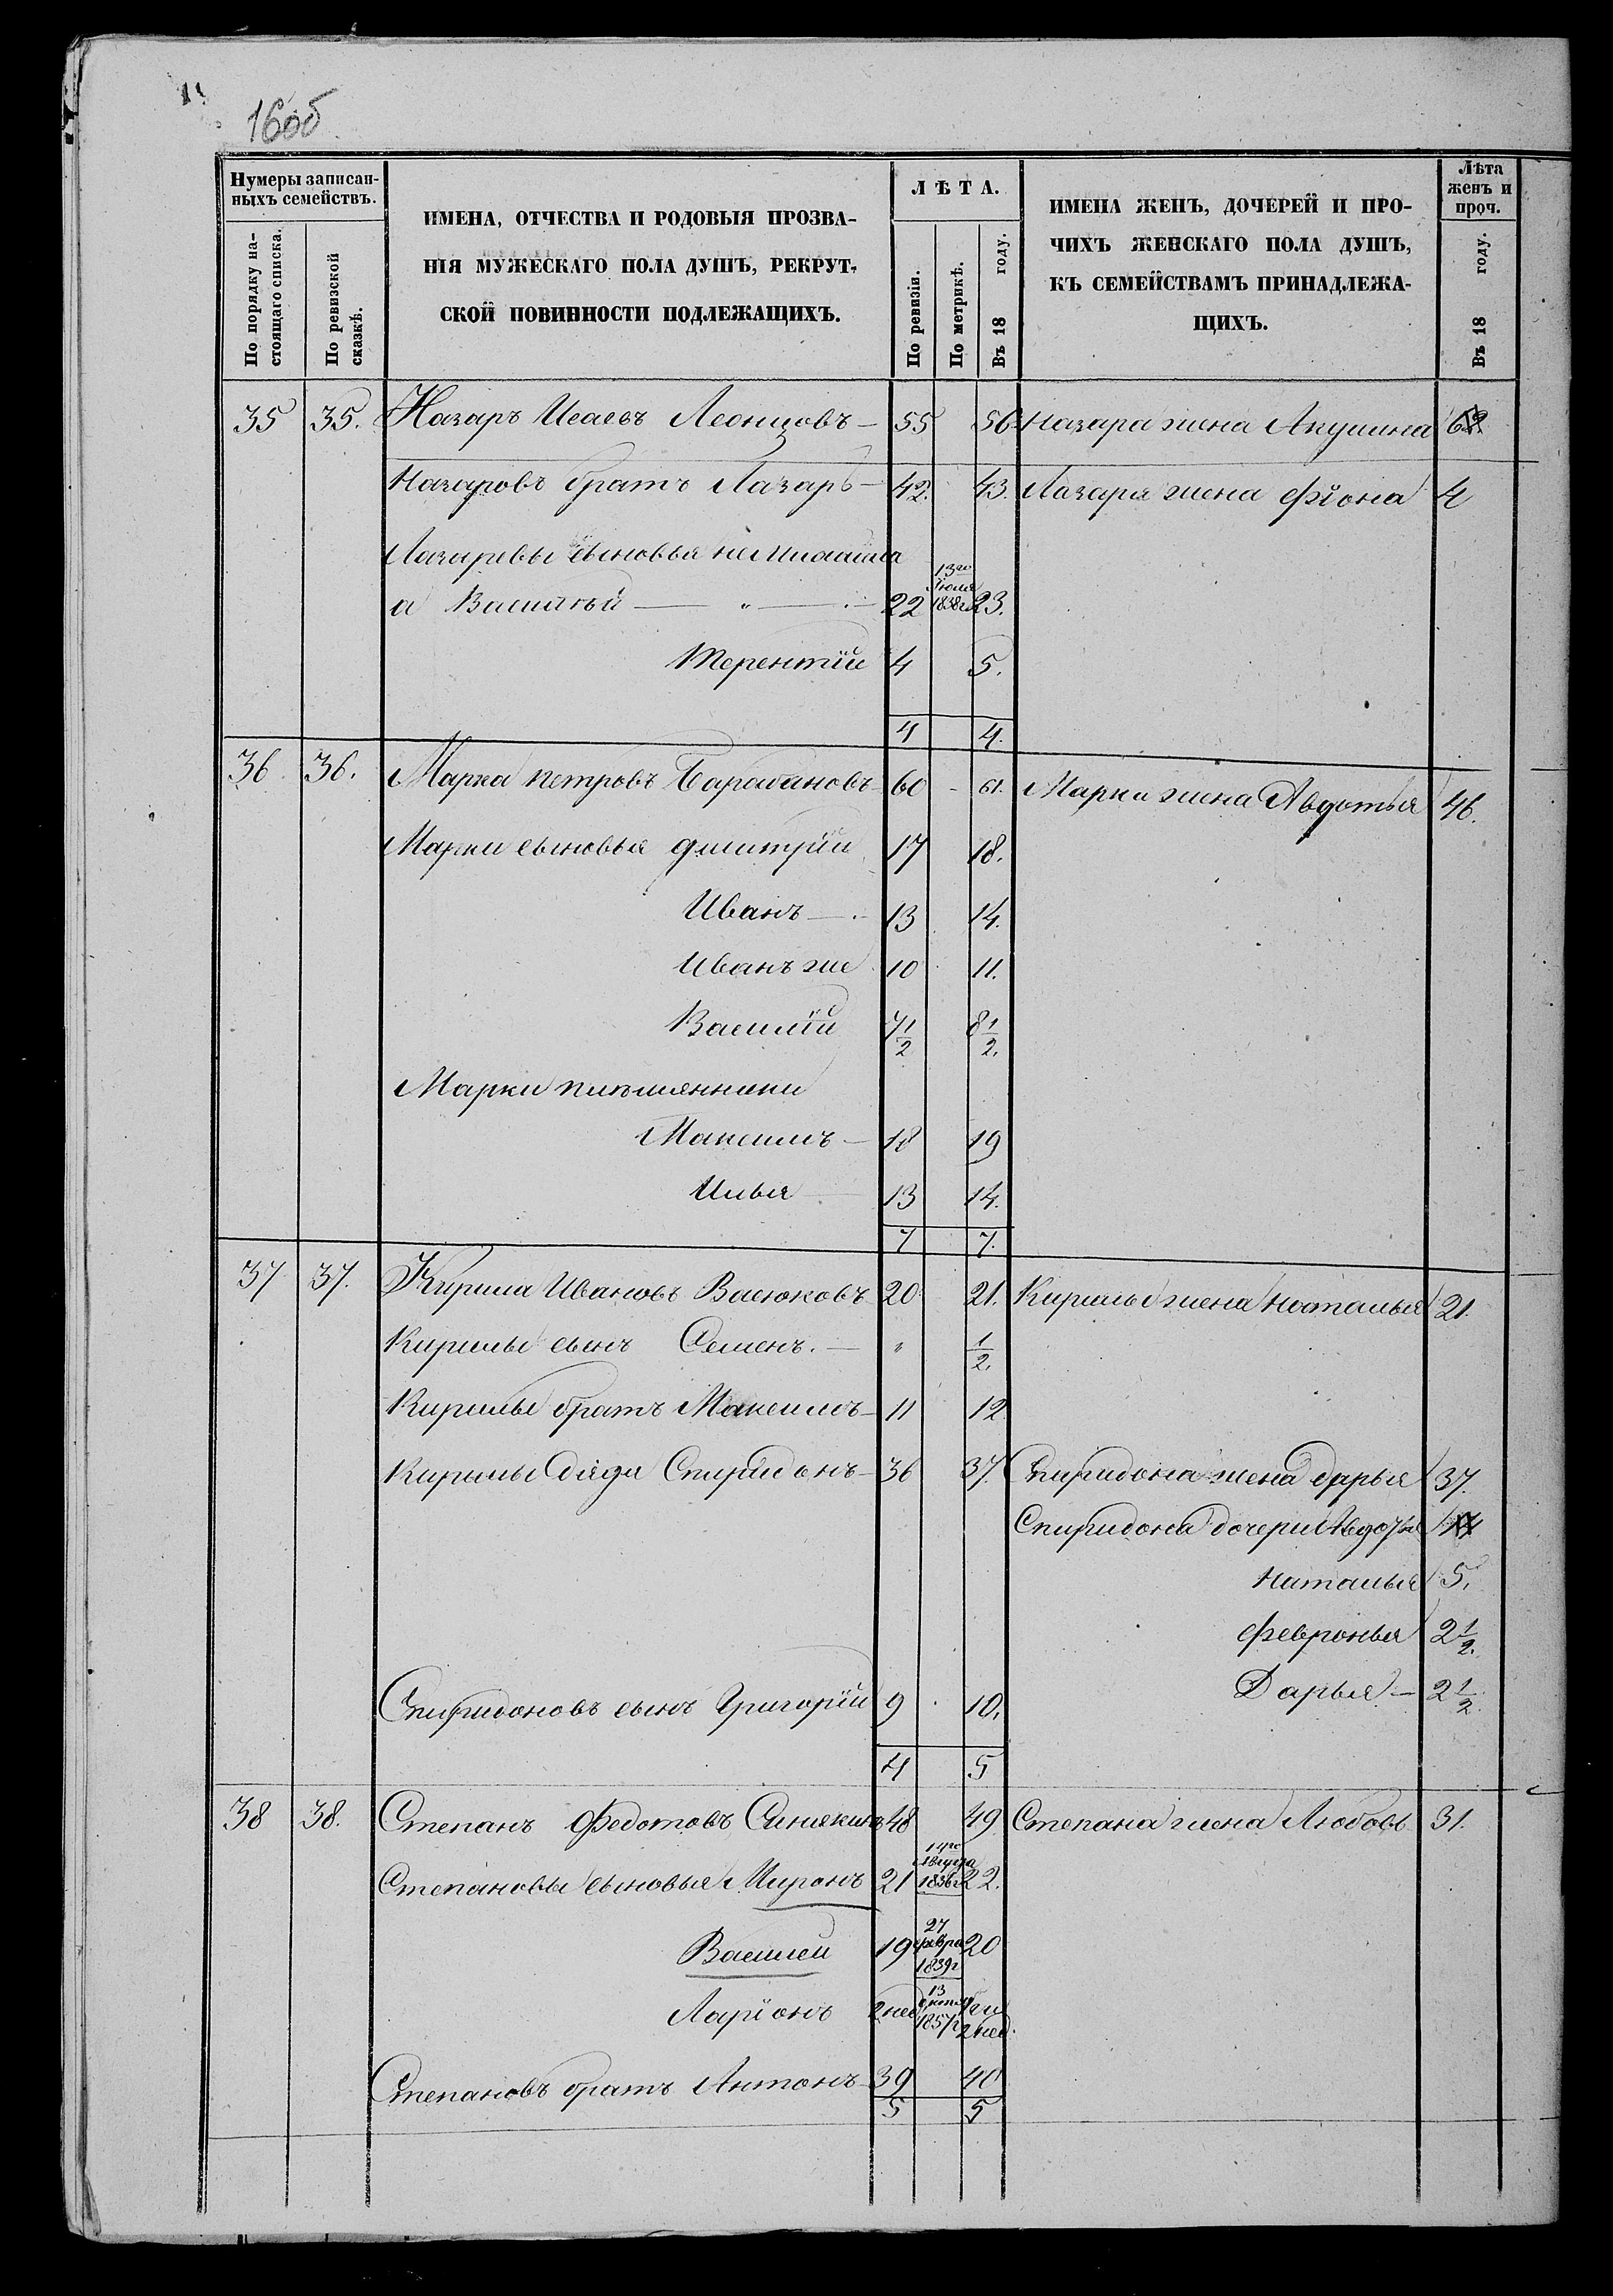 160б
Нумеры записан-
ныхъ семействъ.
По порядку на-
стоящаго списка.
По ревизской
сказкѣ.
ИМЕНА, ОТЧЕСТВА И РОДОВЫЯ ПРОЗВА-
НІЯ МУЖЕСКАГО ПОЛА ДУШЪ, РЕКРУТ-
СКОЙ ПОВИННОСТИ ПОДЛЕЖАЩИХЪ.
ЛѢТА.
По ревизіи.
По метрикѣ.
Въ 18 году.
ИМЕНА ЖЕНЪ, ДОЧЕРЕЙ И ПРО-
ЧИХЪ ЖЕНСКАГО ПОЛА ДУШЪ,
КЪ СЕМЕЙСТВАМЪ ПРИНАДЛЕЖА-
ЩИХЪ.
Лѣта
женъ и
проч.
Въ 18 году.
35 35. Назаръ Исаевъ Леонцовъ 55 56 Назара жена Акулина
Назаровъ братъ Лазарь 42. 43. Лазаря жена Фіона 4
Лазаревы сыновья
а Василій 22 13го Іюля 1838 г 23.
Терентій 4 5.
4 4.
36. 36. Марка Петровъ Барабановъ 60 61. Марки жена Авдотья 46.
Марки сыновья Дмитрій 17 18.
Иванъ 13 14.
Иванъ же 10 11.
Василій 7 1/2 8 1/2.
Марки племянники
Максимъ 18 19
Илья 13 14.
7 7.
37 37. Кирила Ивановъ Васюковъ 20 21. Кирилы жена Наталья 21.
Кирилы сынъ Семенъ. " 1/2.
Кирилы братъ Максимъ 11 12
Кирилы дядя Спиридонъ 36 37. Спиридона жена Дарья 37.
Спиридона дочери Авдотья
Наталья 5.
Февронья 2 1/2.
Дарья 2 1/2.
Спиридоновъ сынъ Григорій 9 10.
4 5
38 38. Степанъ Федотовъ Синякинъ 48 49 Степана жена Любовь 31.
Степановы сыновья Миронъ 21 Августа 1836 г 22.
Василей 19 27 февра 1839 г 20
Ларіонъ 2 нед 13 октяб 1857 г 2 нед.
Степановъ братъ Антонъ 39 40
5 5